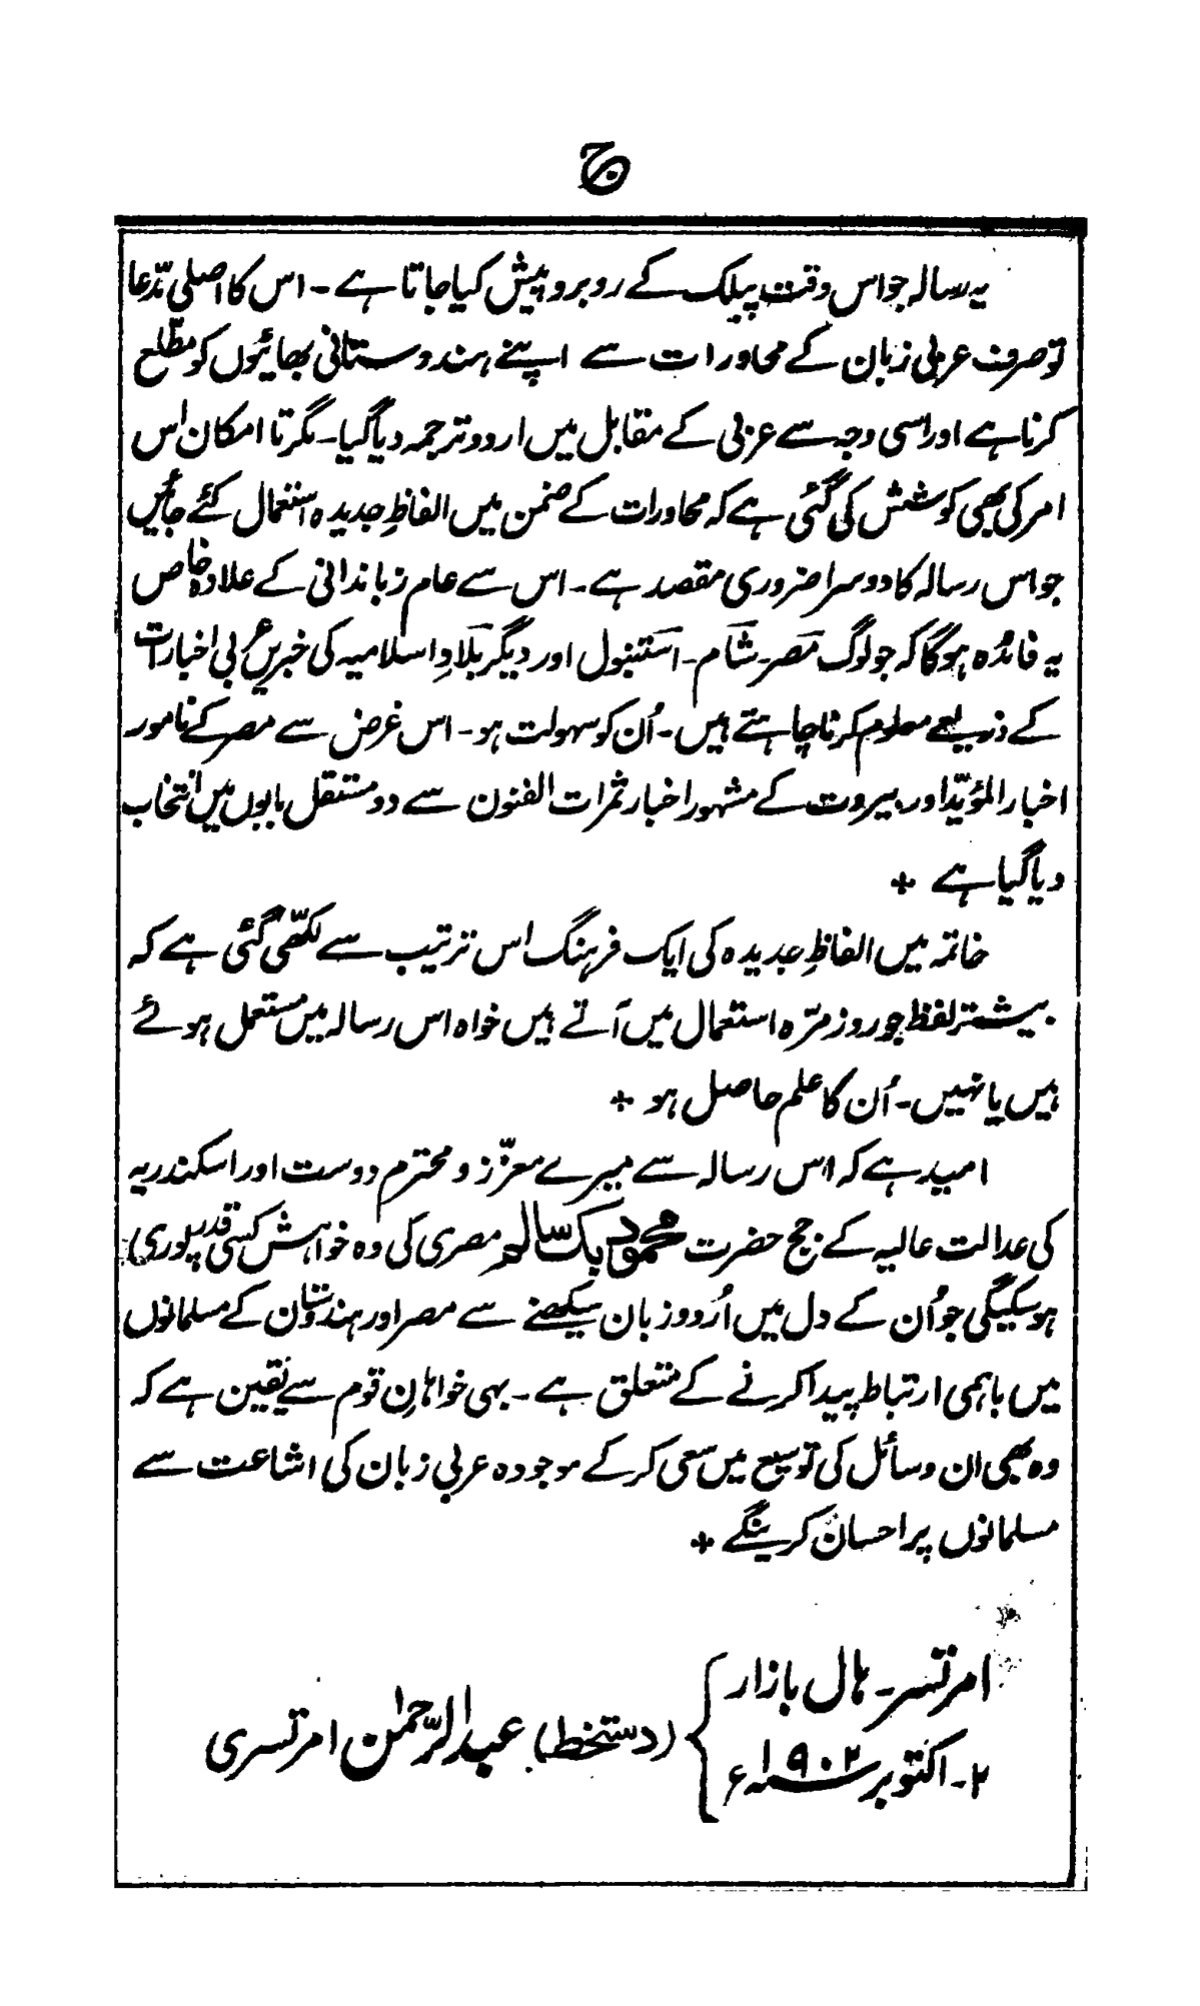 ج
یہ رسالہ جو اس وقت پبلک کے روبرو پیش کیا جاتا ہے ۔ اس کا اصلی مدّعا
تو صرف عربی زبان کے محاورات سے اپنے ہندوستانی بھائیوں کو مطّلع
کرنا ہے اور اسی وجہ سے عربی کے مقابل میں اردو ترجمہ دیا گیا ۔ مگر تا امکان اس
امر کی بھی کوشش کی گئی ہے کہ محاورات کے ضمن میں الفاظِ جدیدہ استعمال کئے جائیں
جو اس رسالہ کا دوسرا ضروری مقصد ہے ۔ اس سے عام زباندانی کے علاوہ خاص
یہ فائدہ ہوگا کہ جو لوگ مصر ۔ شام ۔ استنبول اور دیگر بلادِ اسلامیہ کی خبریں عربی اخبارات
کے ذریعے معلوم کرنا چاہتے ہیں ۔ اُن کو سہولت ہو ۔ اس غرض سے مصر کے نامور
اخبار المؤیّد اور بیروت کے مشہور اخبار ثمرات الفنون سے دو مستقل بابوں میں انتخاب
دیا گیا ہے +
خاتمہ میں الفاظِ جدیدہ کی ایک فرہنگ اس ترتیب سے لکھّی گئی ہے کہ
بیشتر لفظ جو روز مرّہ استعمال میں آتے ہیں خواہ اس رسالہ میں مستعمل ہوئے
ہیں یا نہیں ۔ اُن کا علم حاصل ہو +
امید ہے کہ اس رسالہ سے میرے معزّز و محترم دوست اور اسکندریہ
کی عدالت عالیہ کے جج حضرت محمود بک سالم مصری کی وہ خواہش کسی قدر پوری
ہو سکیگی جو اُن کے دل میں اُردو زبان سیکھنے سے مصر اور ہندوستان کے مسلمانوں
میں باہمی ارتباط پیدا کرنے کے متعلق ہے ۔ بہی خواہانِ قوم سے یقین ہے کہ
وہ بھی ان وسائل کی توسیع میں سعی کر کے موجودہ عربی زبان کی اشاعت سے
مسلمانوں پر احسان کرینگے +
امرتسر ۔ ہال بازار
۲ ۔ اکتوبر سنہ ۱۹۰۲ء
(دستخط) عبد الرّحمٰن امرتسری